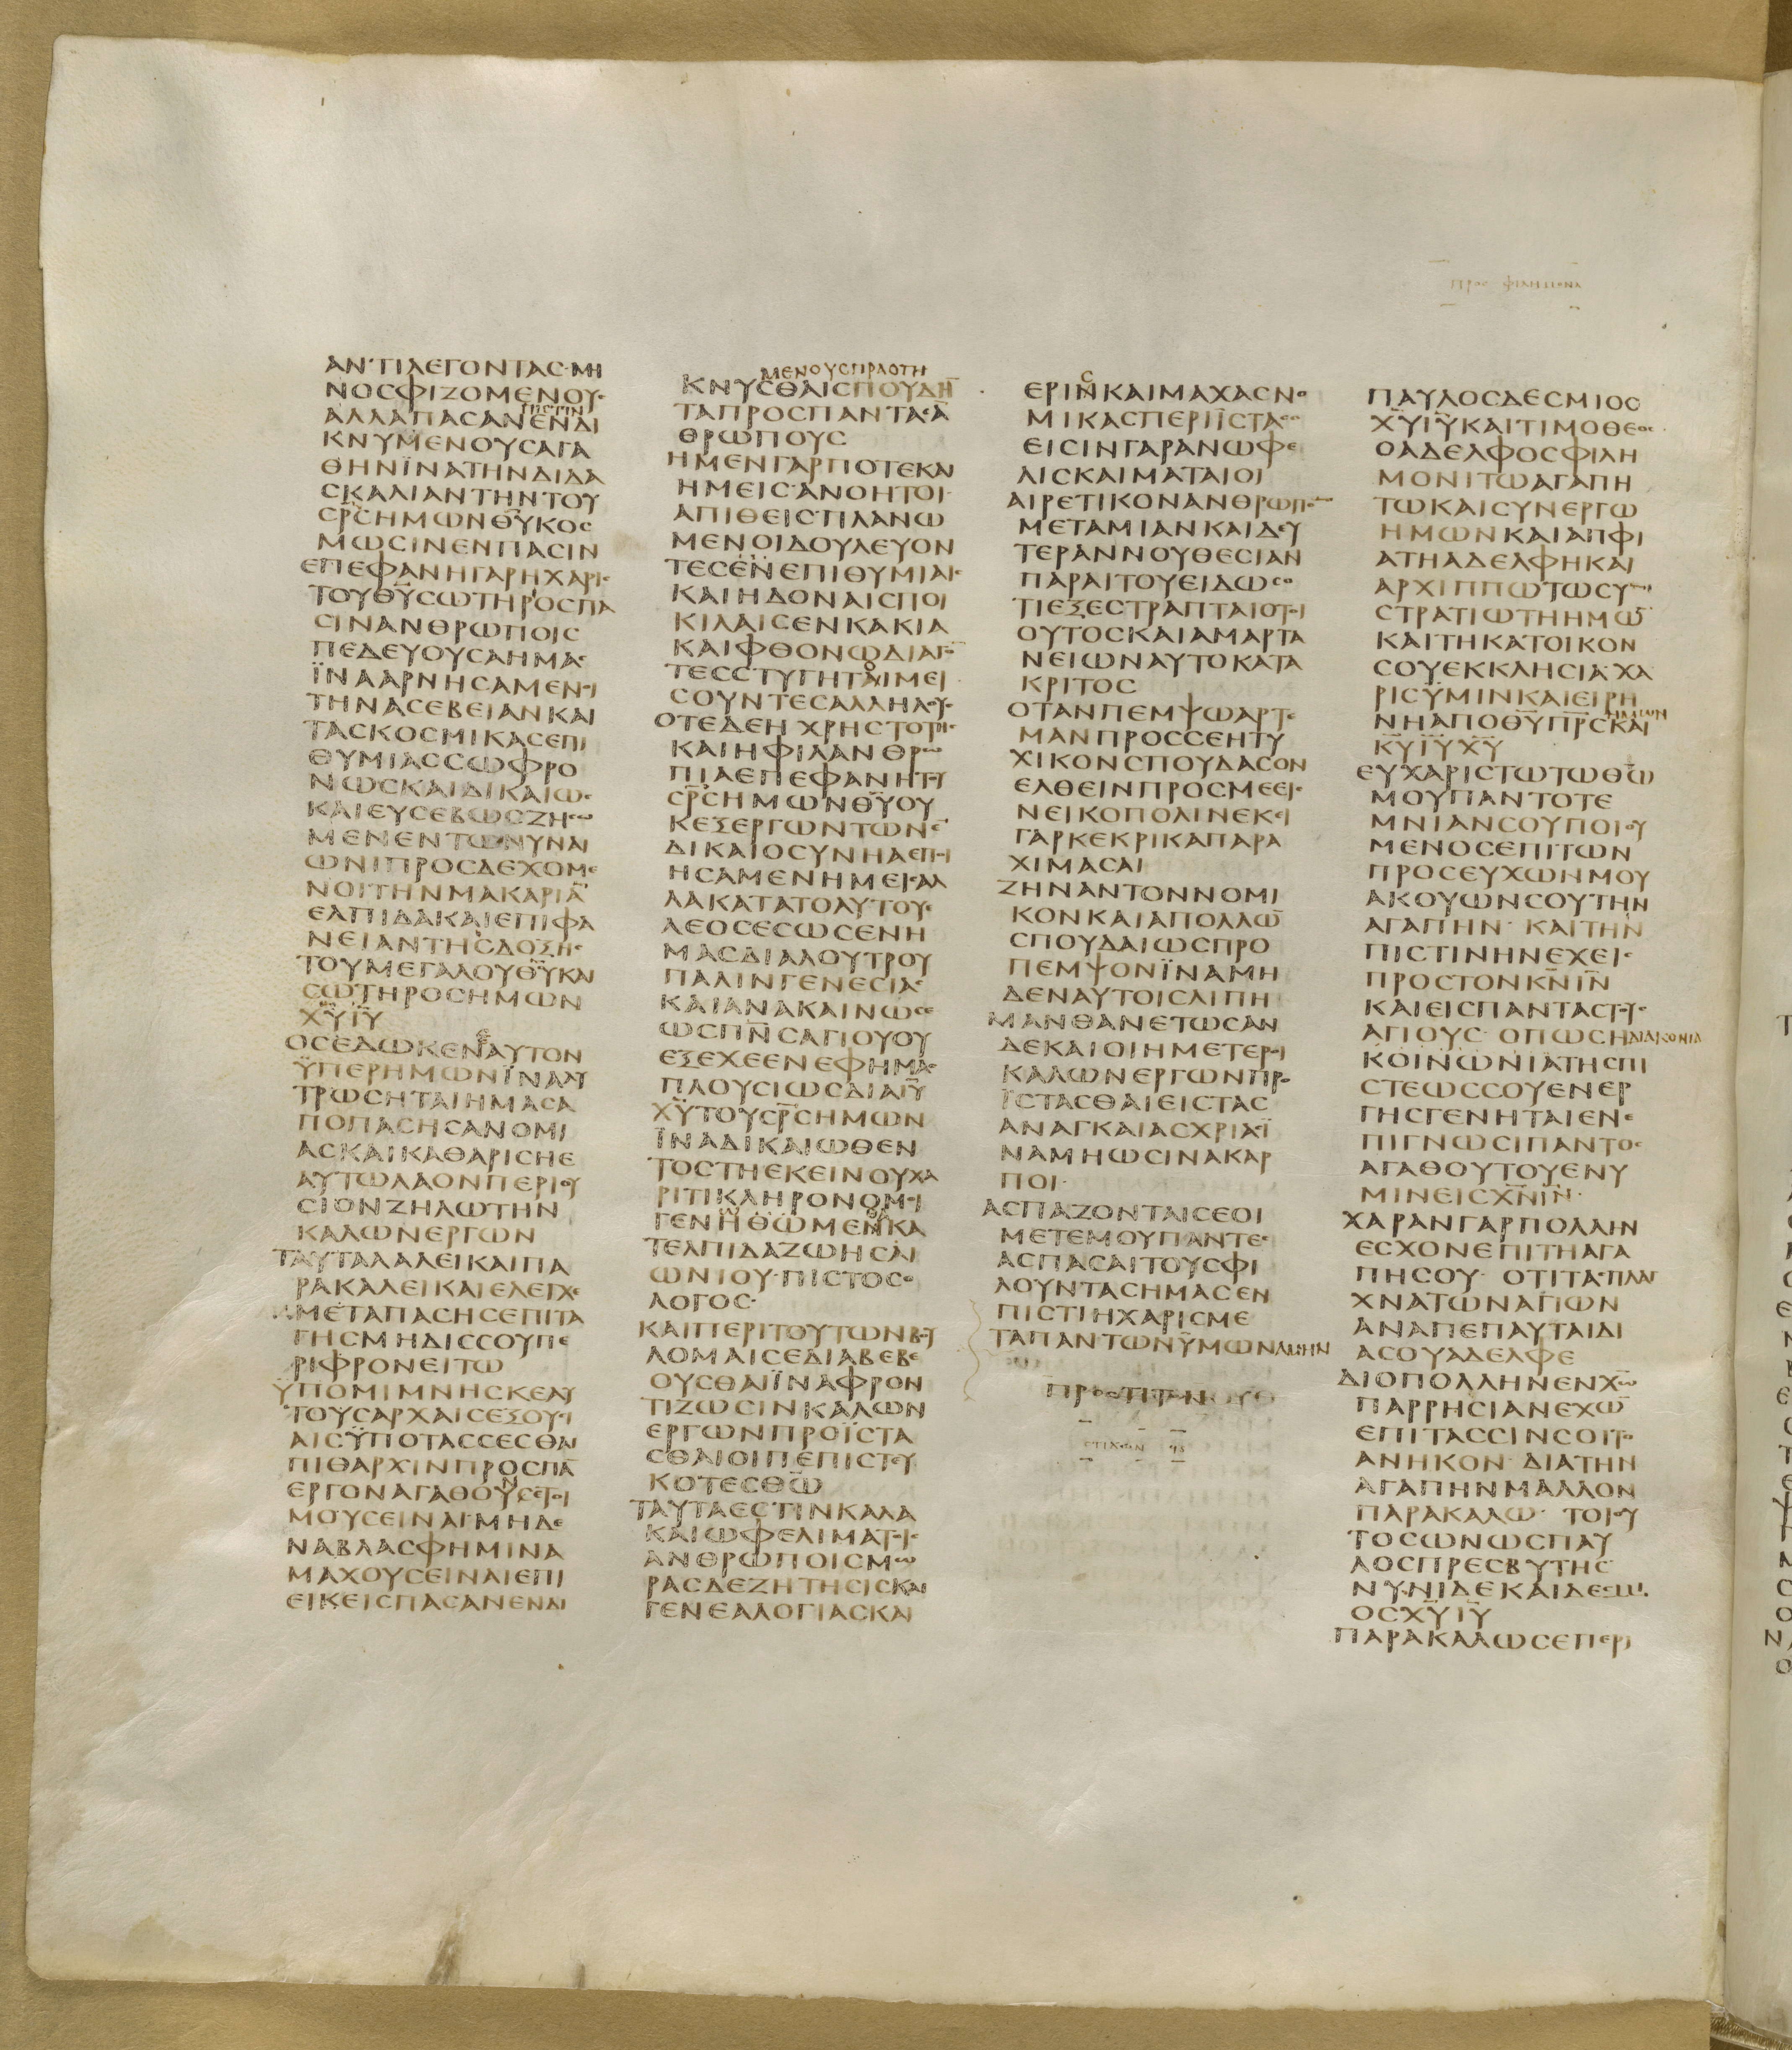 ΠΡΟΣ ΦΙΛΗΜΟΝΑ
ΑΝΤΙΛΕΓΟΝΤΑϹ ΜΗ
ΝΟϹΦΙΖΟΜΕΝΟΥϹ
ΠΙϹΤΙΝ
ΑΛΛΑΠΑϹΑΝΕΝΔΙ
ΚΝΥΜΕΝΟΥϹΑΓΑ
ΘΗΝΪΝΑΤΗΝΔΙΔΑ
ϹΚΑΛΙΑΝΤΗΝΤΟΥ
ϹΡ̅ϹΗΜΩΝΘ̅Υ̅ΚΟϹ
ΜΩϹΙΝΕΝΠΑϹΙΝ
ΕΠΕΦΑΝΗΓΑΡΗΧΑΡΙϹ
ΤΟΥΘ̅Υ̅ϹΩΤΗΡΟϹΠΑ
ϹΙΝΑΝΘΡΩΠΟΙϹ
ΠΕΔΕΥΟΥϹΑΗΜΑϹ
ΪΝΑΑΡΝΗϹΑΜΕΝΟΙ
ΤΗΝΑϹΕΒΕΙΑΝΚΑΙ
ΤΑϹΚΟϹΜΙΚΑϹΕΠΙ
ΘΥΜΙΑϹϹΩΦΡΟ
ΝΩϹΚΑΙΔΙΚΑΙΩϹ
ΚΑΙΕΥϹΕΒΩϹΖΗϹΩ
ΜΕΝΕΝΤΩΝΥΝΑΙ
ΩΝΙΠΡΟϹΔΕΧΟΜΕ
ΝΟΙΤΗΝΜΑΚΑΡΙΑ̅
ΕΛΠΙΔΑΚΑΙΕΠΙΦΑ
ΝΕΙΑΝΤΗϹΔΟΞΗϹ
ΤΟΥΜΕΓΑΛΟΥΘ̅Υ̅ΚΑΙ
ϹΩΤΗΡΟϹΗΜΩΝ
Χ̅Υ̅Ι̅Υ̅
ΟϹΕΔΩΚΕΝΕΑΥΤΟΝ
ΫΠΕΡΗΜΩΝΪΝΑΛΥ
ΤΡΩϹΗΤΑΙΗΜΑϹΑ
ΠΟΠΑϹΗϹΑΝΟΜΙ
ΑϹΚΑΙΚΑΘΑΡΙϹΗΕ
ΑΥΤΩΛΑΟΝΠΕΡΙΟΥ
ϹΙΟΝΖΗΛΩΤΗΝ
ΚΑΛΩΝΕΡΓΩΝ
ΤΑΥΤΑΛΑΛΕΙΚΑΙΠΑ
ΡΑΚΑΛΕΙΚΑΙΕΛΕΓΧΕ
ΜΕΤΑΠΑϹΗϹΕΠΙΤΑ
ΓΗϹΜΗΔΙϹϹΟΥΠΕ
ΡΙΦΡΟΝΕΙΤΩ
ΫΠΟΜΙΜΝΗϹΚΕΑΥ
ΤΟΥϹΑΡΧΑΙϹΕΞΟΥϹΙ
ΑΙϹΫΠΟΤΑϹϹΕϹΘΑΙ
ΠΙΘΑΡΧΙΝΠΡΟϹΠΑ̅
ΕΡΓΟΝΑΓΑΘΟΝΕΤΟΙ
ΜΟΥϹΕΙΝΑΙ ΜΗΔΕ
ΝΑΒΛΑϹΦΗΜΙΝΑ
ΜΑΧΟΥϹΕΙΝΑΙΕΠΙ
ΕΙΚΕΙϹΠΑϹΑΝΕΝΔΙ
ΜΕΝΟΥϹΠΡΑΟΤΗ
ΚΝΥϹΘΑΙϹΠΟΥΔΗ̅
ΤΑΠΡΟϹΠΑΝΤΑϹΑ̅
ΘΡΩΠΟΥϹ
ΗΜΕΝΓΑΡΠΟΤΕΚΑΙ
ΗΜΕΙϹ ΑΝΟΗΤΟΙ
ΑΠΙΘΕΙϹ ΠΛΑΝΩ
ΜΕΝΟΙΔΟΥΛΕΥΟΝ
ΤΕϹΕΝΕΠΙΘΥΜΙΑΙϹ
ΚΑΙΗΔΟΝΑΙϹΠΟΙ
ΚΙΛΑΙϹΕΝΚΑΚΙΑ
ΚΑΙΦΘΟΝΩΔΙΑΓΟ̅
ΤΕϹϹΤΥΓΗΤΟΙΜΕΙ
ϹΟΥΝΤΕϹΑΛΛΗΛΟΥϹ
ΟΤΕΔΕΗΧΡΗϹΤΟΤΗϹ
ΚΑΙΗΦΙΛΑΝΘΡΩ
ΠΙΑΕΠΕΦΑΝΗΤΟΥ
ϹΡ̅ϹΗΜΩΝΘ̅Υ̅ΟΥ
ΚΕΞΕΡΓΩΝΤΩΝΕ̅
ΔΙΚΑΙΟϹΥΝΗΑΕΠΟΙ
ΗϹΑΜΕΝΗΜΕΙϹΑΛ
ΛΑΚΑΤΑΤΟΑΥΤΟΥΕ
ΛΕΟϹΕϹΩϹΕΝΗ
ΜΑϹΔΙΑΛΟΥΤΡΟΥ
ΠΑΛΙΝΓΕΝΕϹΙΑϹ
ΚΑΙΑΝΑΚΑΙΝΩϹΕ
ΩϹΠ̅Ν̅ϹΑΓΙΟΥΟΥ
ΕΞΕΧΕΕΝΕΦΗΜΑϹ
ΠΛΟΥϹΙΩϹΔΙΑΙ̅Υ̅
Χ̅Υ̅ΤΟΥϹΡ̅ϹΗΜΩΝ
ΪΝΑΔΙΚΑΙΩΘΕΝ
ΤΟϹΤΗΕΚΕΙΝΟΥΧΑ
ΡΙΤΙΚΛΗΡΟΝΟΜΟΙ
ΓΕΝΗΘΩΜΕΝΚΑ
ΤΕΛΠΙΔΑΖΩΗϹΑΙ
ΩΝΙΟΥ ΠΙϹΤΟϹΟ
ΛΟΓΟϹ
ΚΑΙΠΕΡΙΤΟΥΤΩΝΒΟΥ
ΛΟΜΑΙϹΕΔΙΑΒΕΒΕ
ΟΥϹΘΑΙΪΝΑΦΡΟΝ
ΤΙΖΩϹΙΝΚΑΛΩΝ
ΕΡΓΩΝΠΡΟΪϹΤΑ
ϹΘΑΙΟΙΠΕΠΙϹΤΕΥ
ΚΟΤΕϹΘ̅Ω̅
ΤΑΥΤΑΕϹΤΙΝΚΑΛΑ
ΚΑΙΩΦΕΛΙΜΑΤΟΙϹ
ΑΝΘΡΩΠΟΙϹΜΩ
ΡΑϹΔΕΖΗΤΗϹΙϹΚΑΙ
ΓΕΝΕΑΛΟΓΙΑϹΚΑΙ
ΕΡΙΝΚΑΙΜΑΧΑϹΝΟ
ΜΙΚΑϹΠΕΡΙΪϹΤΑϹΟ
ΕΙϹΙΝΓΑΡΑΝΩΦΕ
ΛΙϹΚΑΙΜΑΤΑΙΟΙ
ΑΙΡΕΤΙΚΟΝΑΝΘΡΩΠΟ̅
ΜΕΤΑΜΙΑΝΚΑΙΔΕΥ
ΤΕΡΑΝΝΟΥΘΕϹΙΑΝ
ΠΑΡΑΙΤΟΥΕΙΔΩϹΟ
ΤΙΕΞΕϹΤΡΑΠΤΑΙΟΤΟΙ
ΟΥΤΟϹΚΑΙΑΜΑΡΤΑ
ΝΕΙΩΝΑΥΤΟΚΑΤΑ
ΚΡΙΤΟϹ
ΟΤΑΝΠΕΜΨΩΑΡΤΕ
ΜΑΝΠΡΟϹϹΕΗΤΥ
ΧΙΚΟΝϹΠΟΥΔΑϹΟΝ
ΕΛΘΕΙΝΠΡΟϹΜΕΕΙϹ
ΝΕΙΚΟΠΟΛΙΝΕΚΕΙ
ΓΑΡΚΕΚΡΙΚΑΠΑΡΑ
ΧΙΜΑϹΑΙ
ΖΗΝΑΝΤΟΝΝΟΜΙ
ΚΟΝΚΑΙΑΠΟΛΛΩ̅
ϹΠΟΥΔΑΙΩϹΠΡΟ
ΠΕΜΨΟΝΪΝΑΜΗ
ΔΕΝΑΥΤΟΙϹΛΙΠΗ
ΜΑΝΘΑΝΕΤΩϹΑΝ
ΔΕΚΑΙΟΙΗΜΕΤΕΡΟΙ
ΚΑΛΩΝΕΡΓΩΝΠΡΟ
ΪϹΤΑϹΘΑΙΕΙϹΤΑϹ
ΑΝΑΓΚΑΙΑϹΧΡΙΑϹΪ
ΝΑΜΗΩϹΙΝΑΚΑΡ
ΠΟΙ
ΑϹΠΑΖΟΝΤΑΙϹΕΟΙ
ΜΕΤΕΜΟΥΠΑΝΤΕϹ
ΑϹΠΑϹΑΙΤΟΥϹΦΙ
ΛΟΥΝΤΑϹΗΜΑϹΕΝ
ΠΙϹΤΙΗΧΑΡΙϹΜΕ
ΤΑΠΑΝΤΩΝΫΜΩΝΑΜΗΝ
ΠΡΟϹΤΙΤΟΝ
ϹΤΙΧΩΝ
ΠΑΥΛΟϹΔΕϹΜΙΟϹ
Χ̅Υ̅Ι̅Υ̅ΚΑΙΤΙΜΟΘΕΟϹ
ΟΑΔΕΛΦΟϹΦΙΛΗ
ΜΟΝΙΤΩΑΓΑΠΗ
ΤΩΚΑΙϹΥΝΕΡΓΩ
ΗΜΩΝΚΑΙΑΠΦΙ
ΑΤΗΑΔΕΛΦΗΚΑΙ
ΑΡΧΙΠΠΩΤΩϹΥ
ϹΤΡΑΤΙΩΤΗΗΜΩ̅
ΚΑΙΤΗΚΑΤΟΙΚΟΝ
ϹΟΥΕΚΚΛΗϹΙΑ ΧΑ
ΡΙϹΫΜΙΝΚΑΙΕΙΡΗ
ΗΜΩΝ
ΝΗΑΠΟΘ̅Υ̅Π̅Ρ̅ϹΚΑΙ
Κ̅Υ̅Ι̅Υ̅Χ̅Υ̅
ΕΥΧΑΡΙϹΤΩΤΩΘ̅Ω̅
ΜΟΥΠΑΝΤΟΤΕ
ΜΝΙΑΝϹΟΥΠΟΙΟΥ
ΜΕΝΟϹΕΠΙΤΩΝ
ΠΡΟϹΕΥΧΩΝΜΟΥ
ΑΚΟΥΩΝϹΟΥΤΗΝ
ΑΓΑΠΗΝ ΚΑΙΤΗΝ
ΠΙϹΤΙΝΗΝΕΧΕΙϹ
ΠΡΟϹΤΟΝΚ̅Ν̅Ι̅Ν̅
ΚΑΙΕΙϹΠΑΝΤΑϹΤΟΥϹ
ΑΓΙΟΥϹ ΟΠΩϹΗΔΙΑΚΟΝΙΑ
ΚΟΙΝΩΝΙΑΤΗϹΠΙ
ϹΤΕΩϹϹΟΥΕΝΕΡ
ΓΗϹΓΕΝΗΤΑΙΕΝΕ
ΠΙΓΝΩϹΙΠΑΝΤΟϹ
ΑΓΑΘΟΥΤΟΥΕΝΥ
ΜΙΝΕΙϹΧ̅Ν̅Ι̅Ν̅
ΧΑΡΑΝΓΑΡΠΟΛΛΗΝ
ΕϹΧΟΝΕΠΙΤΗΑΓΑ
ΠΗϹΟΥ ΟΤΙΤΑϹΠΛΑΓ
ΧΝΑΤΩΝΑΓΙΩΝ
ΑΝΑΠΕΠΑΥΤΑΙΔΙ
ΑϹΟΥΑΔΕΛΦΕ
ΔΙΟΠΟΛΛΗΝΕΝΧ̅Ω̅
ΠΑΡΡΗϹΙΑΝΕΧΩ̅
ΕΠΙΤΑϹϹΙΝϹΟΙΤΟ
ΑΝΗΚΟΝ ΔΙΑΤΗΝ
ΑΓΑΠΗΝΜΑΛΛΟΝ
ΠΑΡΑΚΑΛΩ ΤΟΙΟΥ
ΤΟϹΩΝΩϹΠΑΥ
ΛΟϹΠΡΕϹΒΥΤΗϹ
ΝΥΝΙΔΕΚΑΙΔΕϹΜΙ
ΟϹΧ̅Υ̅Ι̅Υ̅
ΠΑΡΑΚΑΛΩϹΕΠΕΡΙ